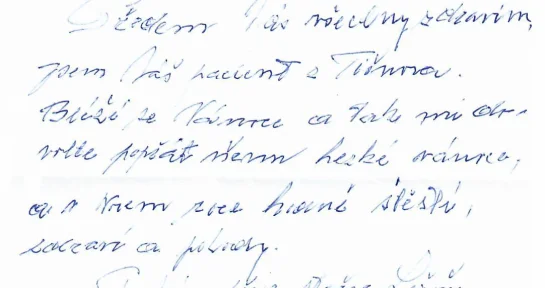 Předem Vás všechny zdravím,
jsem Váš pacient z Tišnova.
Blíží se Vánoce a tak mi do-
volte popřát všem hezké vánoce,
a v novém roce hodně štěstí,
zdraví a pohody.